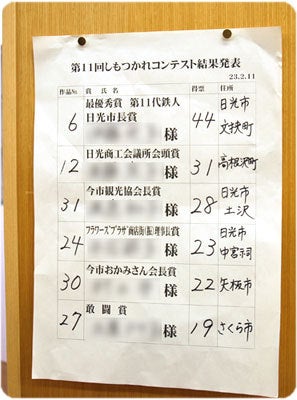 第11回しもつかれコンテスト結果発表
23.2.11
作品№ 賞 氏 名 得票 住所
最優秀賞 第11代鉄人
6 日光市長賞 44 日光市
様 文挾町
12 日光商工会議所会頭賞 31 高根沢町
様
31 今市観光協会長賞 28 日光市
様 土沢
24 フラワーズプラザ商店街(振)理事長賞 23 日光市
様 中宮祠
30 今市おかみさん会長賞 22 矢板市
様
27 敢 闘 賞 19 さくら市
様